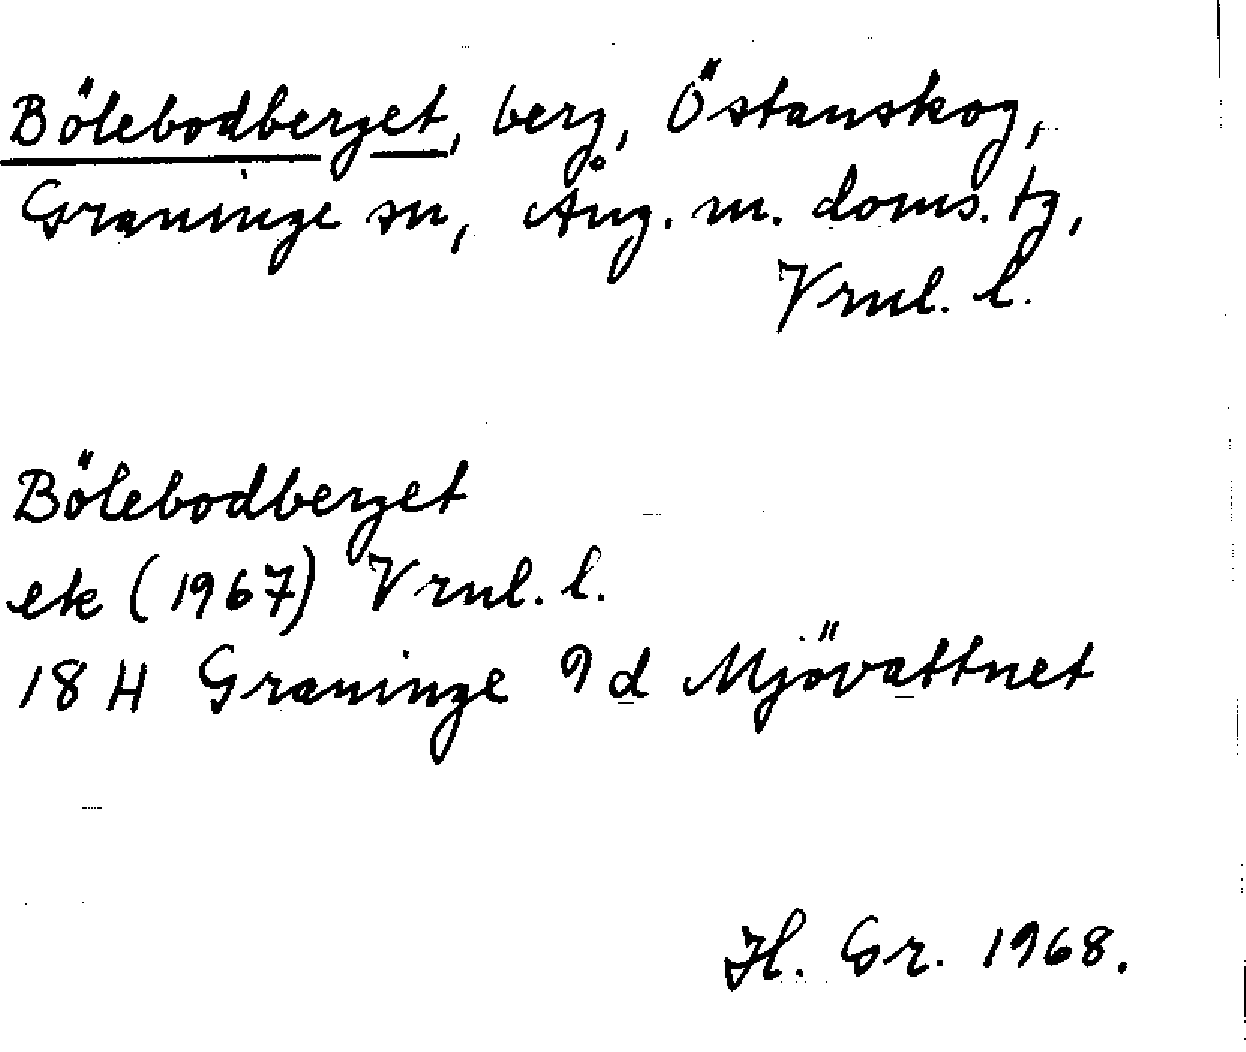 Bölebodberget, berg, Östanskog,
Graninge sn, Ång. m. doms. tg,
Vrnl. l.
Bölebodberget
ek (1967) Vrnl. l.
18 H Graninge 9 d Mjövattnet
H. Gr. 1968.